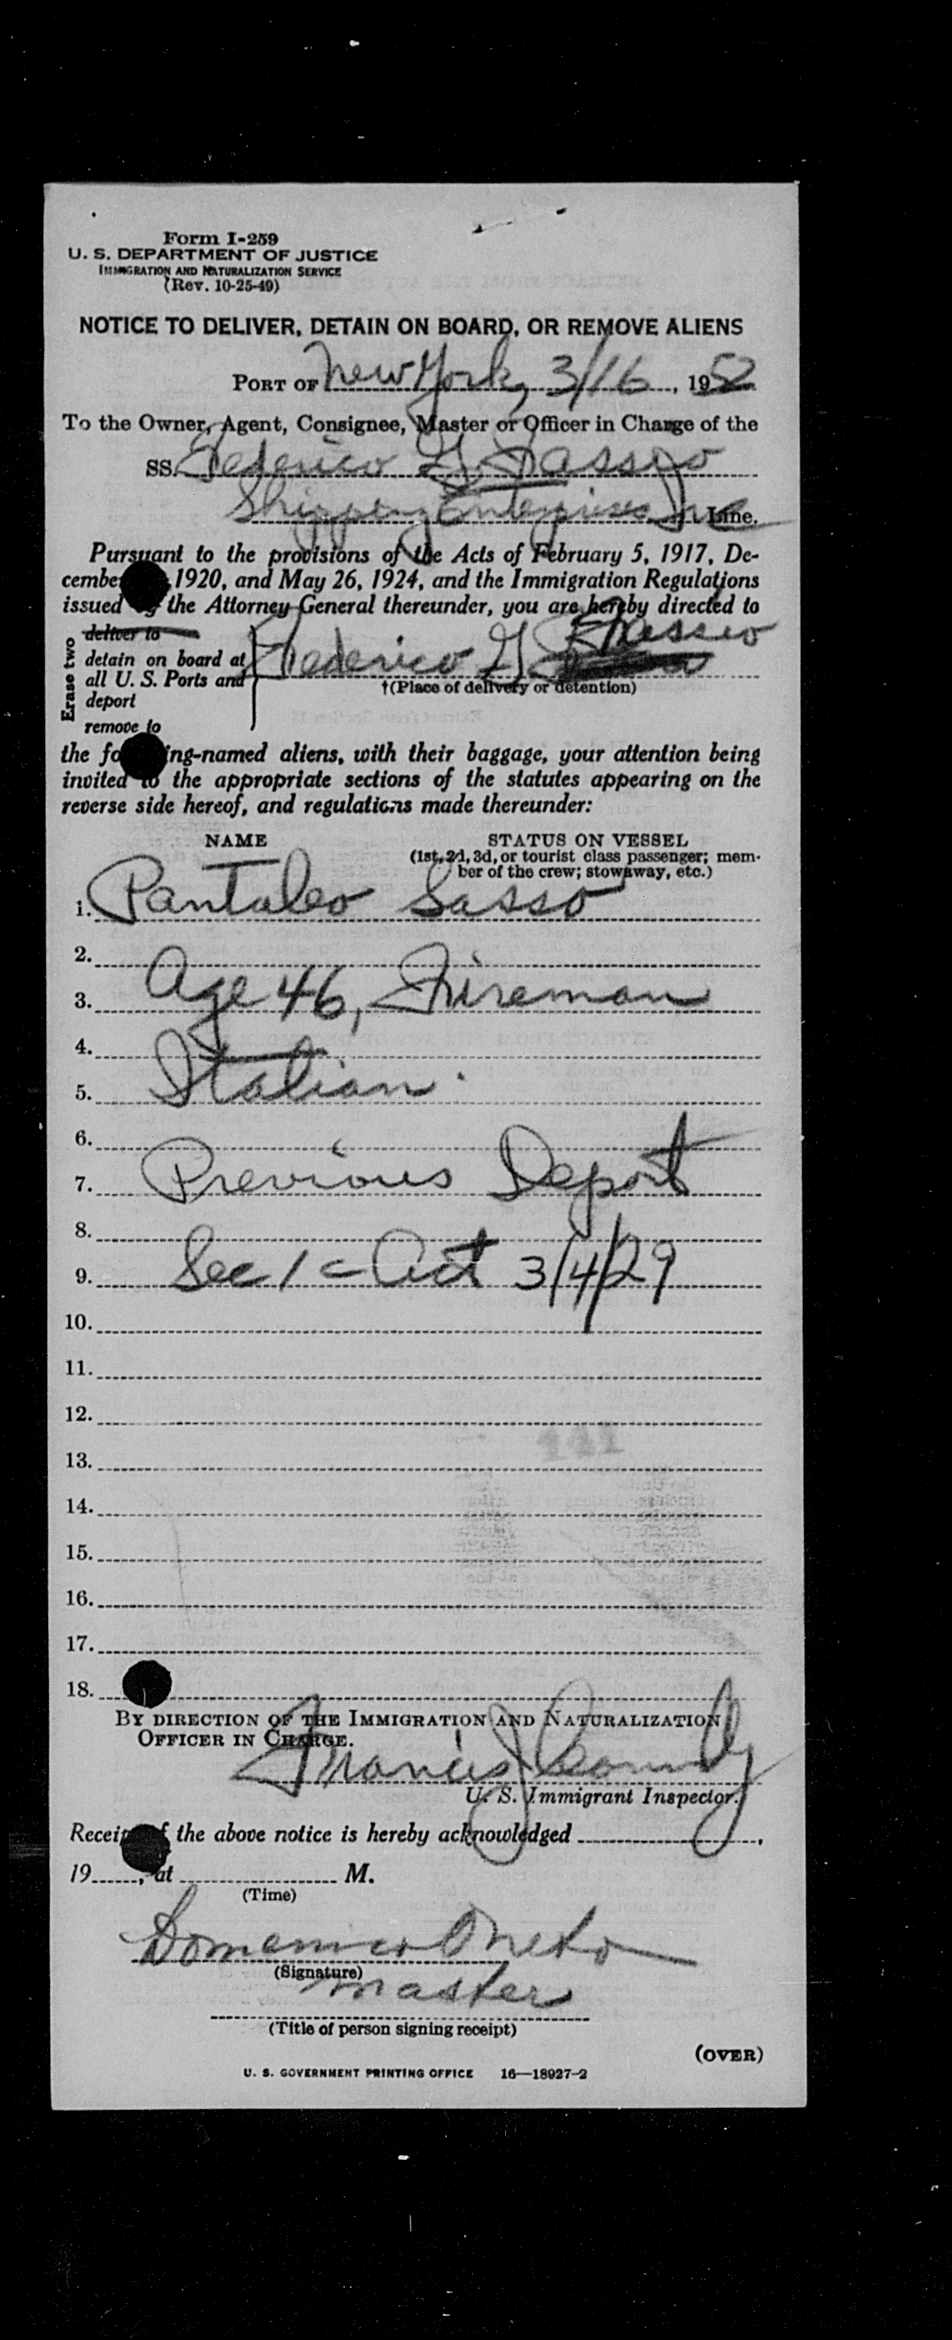 Form I-259
U. S. DEPARTMENT OF JUSTICE
IMMIGRATION AND NATURALIZATION SERVICE
(Rev. 10-25-49)
NOTICE TO DELIVER, DETAIN ON BOARD, OR REMOVE ALIENS
PORT OF New York, 3/16, 1952
To the Owner, Agent, Consignee, Master or Officer in Charge of the
SS. Federico G. Fassio
Shipping Enterprises Inc Line.
Pursuant to the provisions of the Acts of February 5, 1917, De-
cembe 1920, and May 26, 1924, and the Immigration Regulations
issued by the Attorney General thereunder, you are hereby directed to
Erase two
deliver to
detain on board at
all U. S. Ports and
deport
remove to
Federico G Fassio
†(Place of delivery or detention)
the fo ing-named aliens, with their baggage, your attention being
invited to the appropriate sections of the statutes appearing on the
reverse side hereof, and regulations made thereunder:
NAME STATUS ON VESSEL
(1st, 2d, 3d, or tourist class passenger; mem-
ber of the crew; stowaway, etc.)
1. Pantaleo Sasso
2.
3. Age 46, Fireman
4.
5. Italian.
6.
7. Previous Deport
8.
9. Sec 1 c Act 3/4/29
10.
11.
12.
13.
141
14.
15.
16.
17.
18.
BY DIRECTION OF THE IMMIGRATION AND NATURALIZATION
OFFICER IN CHARGE.
Francis J
U. S. Immigrant Inspector.
Receip f the above notice is hereby acknowledged ,
19 , at M.
(Time)
Domenico Oneto
(Signature)
master
(Title of person signing receipt)
(OVER)
U. S. GOVERNMENT PRINTING OFFICE 16—18927-2